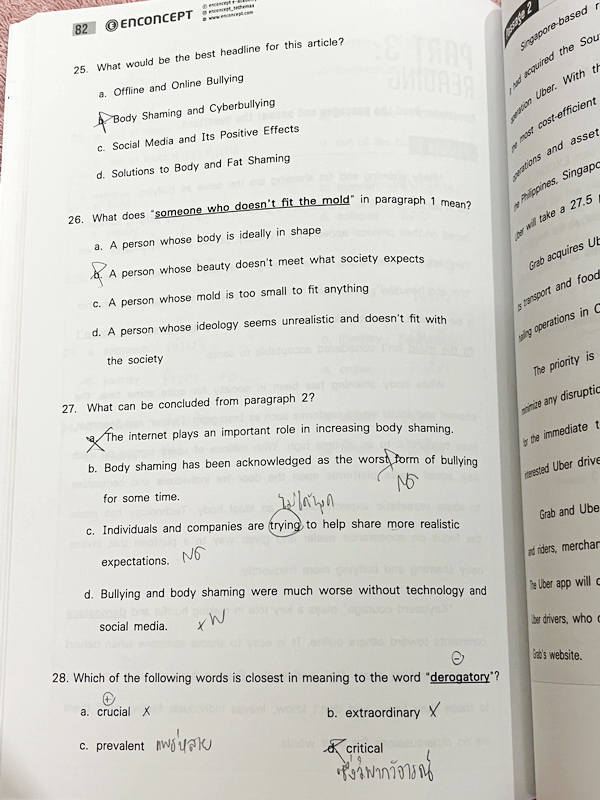 82 ENCONCEPT
enconcept e-Academy
enconcept_tethemax
www.enconcept.com
25. What would be the best headline for this article?
a. Offline and Online Bullying
b. Body Shaming and Cyberbullying
c. Social Media and Its Positive Effects
d. Solutions to Body and Fat Shaming
26. What does "someone who doesn't fit the mold" in paragraph 1 mean?
a. A person whose body is ideally in shape
b. A person whose beauty doesn't meet what society expects
c. A person whose mold is too small to fit anything
d. A person whose ideology seems unrealistic and doesn't fit with
the society
27. What can be concluded from paragraph 2?
a. The internet plays an important role in increasing body shaming.
b. Body shaming has been acknowledged as the worst form of bullying
for some time.
NG
ไม่ได้พูด
c. Individuals and companies are trying to help share more realistic
expectations. NG
d. Bullying and body shaming were much worse without technology and
social media. x W
28. Which of the following words is closest in meaning to the word "derogatory"?
a. crucial x
b. extraordinary x
c. prevalent แพร่หลาย
d. critical
ซึ่งวิพากวิจารณ์
Passage 2
Singapore-based
had acquired the
operation Uber. With
the most cost-efficient
operations and
the Philippines,
Uber will take a 27.5
Grab acquires
its transport and food
hailing operations in
The priority is
minimize any
for the immediate
interested Uber
Grab and
and riders,
The Uber app will
Uber drivers, who
Grab's website.